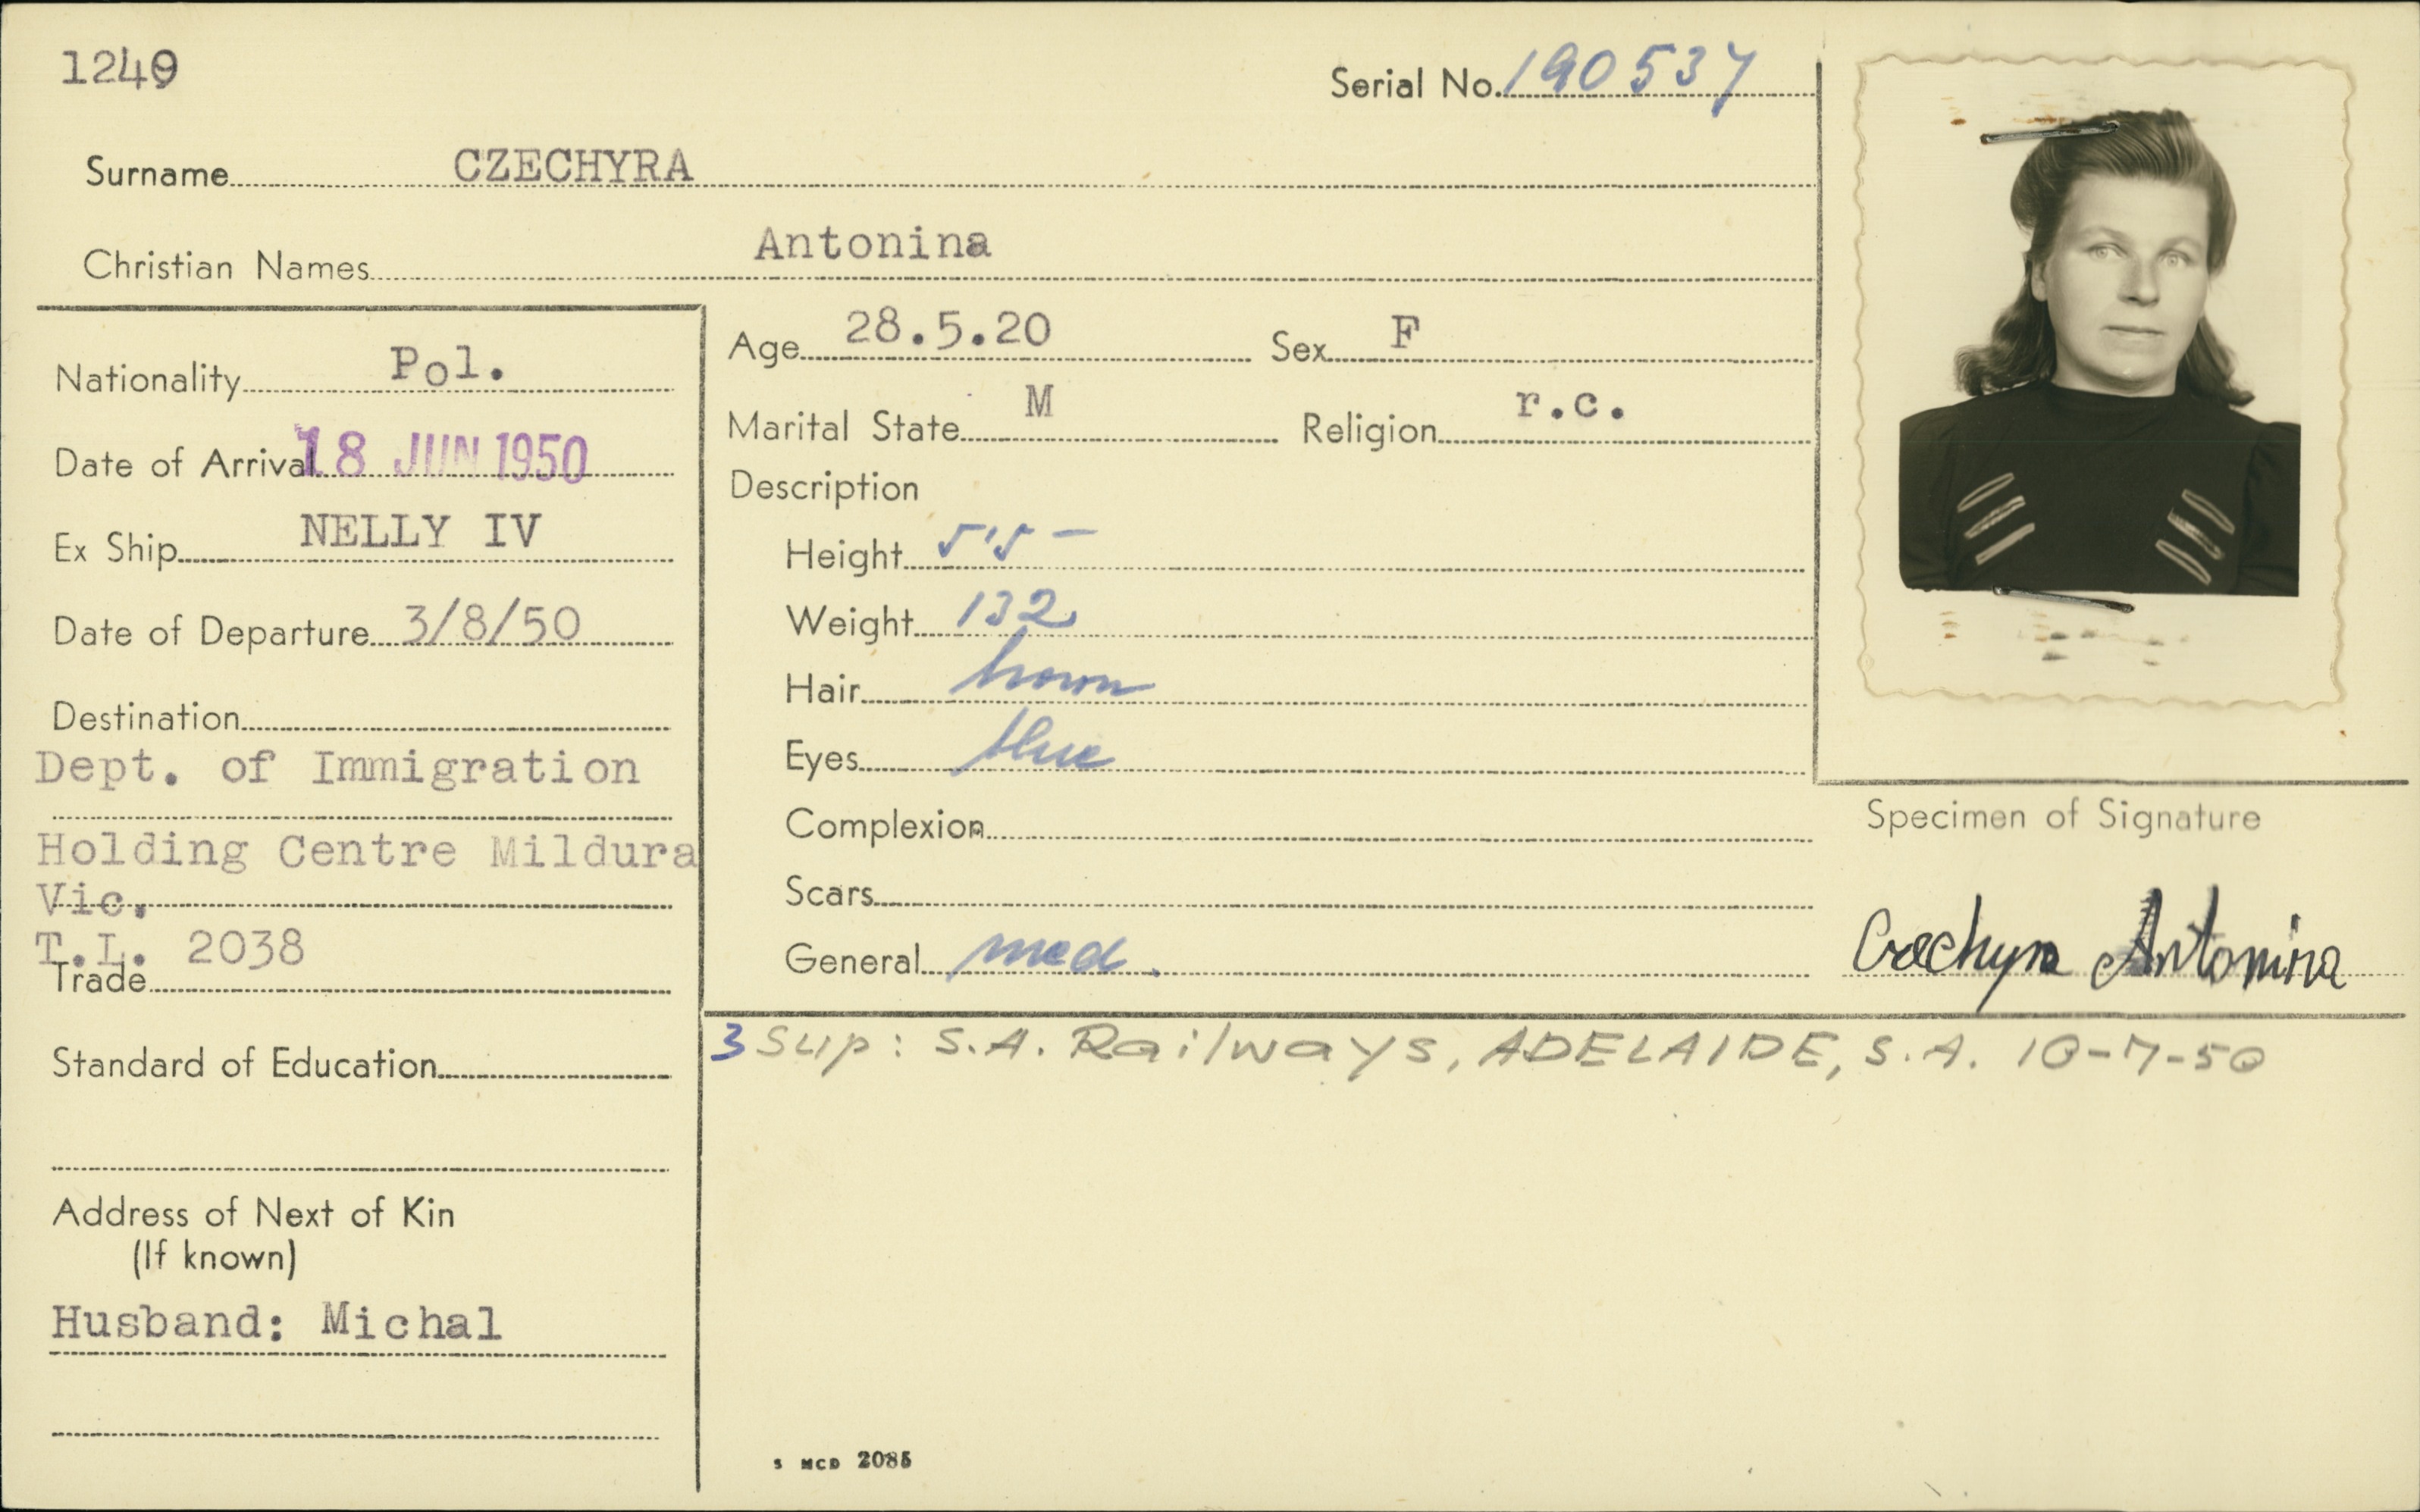 1249
Serial No. 190537
Surname CZECHYRA
Christian Names Antonina
Nationality Pol.
Date of Arrival 18 JUN 1950
Ex Ship NELLY IV
Date of Departure 3/8/50
Destination
Dept. of Immigration
Holding Centre Mildura
Vic.
T.L. 2038
Trade
Standard of Education
Address of Next of Kin
(If known)
Husband: Michal
Age 28.5.20 Sex F
Marital State M Religion r.c.
Description
Height 5'5 -
Weight 132
Hair brown
Eyes blue
Complexion
Scars
General med.
Specimen of Signature
Czechyra Antonina
3 Sup: S.A. Railways, ADELAIDE, S.A. 10-7-50
S MCD 2085